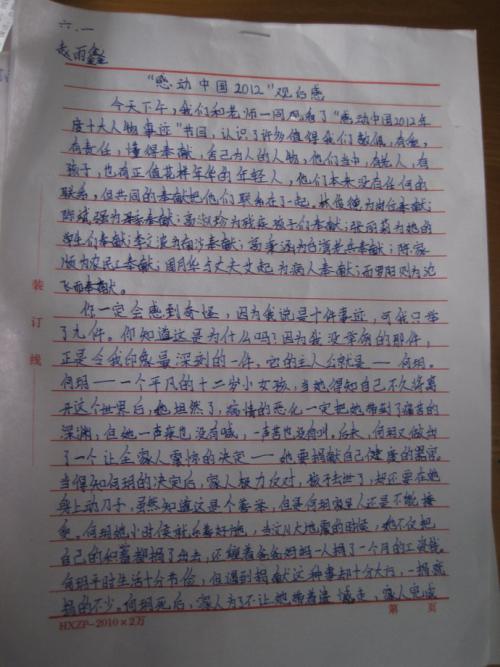 六.一
袁雨鑫
"感动中国2012"观后感
今天下午,我们和老师一同观看了"感动中国2012年
度十大人物事迹"节目,认识了许多值得我们敬佩,有爱,
有责任,懂得奉献,自己为人的人物,他们当中,有老人,有
孩子,也有正值花样年华的年轻人,他们本来没有任何的
联系,但共同的奉献把他们联系在了一起,林俊德为岗位奉献;
陈斌强为母亲奉献;高淑珍为残疾孩子们奉献;张丽莉为她的
学生们奉献;李文波为南沙奉献;高秉涵为台湾老兵奉献;陈家
顺为农民工奉献;周月华与丈夫艾起为病人奉献;而罗阳则为沈
飞而奉献。
你一定会感到奇怪,因为我说是十件事迹,可我只举
了九件。你知道这是为什么吗?因为我没举例的那件,
正是令我印象最深刻的一件,它的主人公就是——何玥。
何玥——一个平凡的十二岁小女孩,当她得知自己不久将离
开这个世界后,她坦然了,病情的恶化一定把她带到了痛苦的
深渊,但她一声疼也没有喊,一声苦也没有叫。后来,何玥又做出
了一个让全家人震惊的决定——她要捐献自己健康的器官。
当得知何玥的决定后,家人极力反对,孩子去世了,却还要在她
身上动刀子,虽然知道这是个善举,但是何玥家里人还是不能接
受。何玥她小时侯就乐善好施,当汶川大地震的时候,她不仅把
自己的积蓄都捐了出去,还缠着爸爸妈妈一人捐了一个月的工资钱。
何玥平时生活十分节俭,但遇到捐献这种事却十分大方,一捐就
捐的不少。何玥死后,家人为了不让她带着遗憾走,家人完成
装
订
线
第 页
HXZP-2010×2万